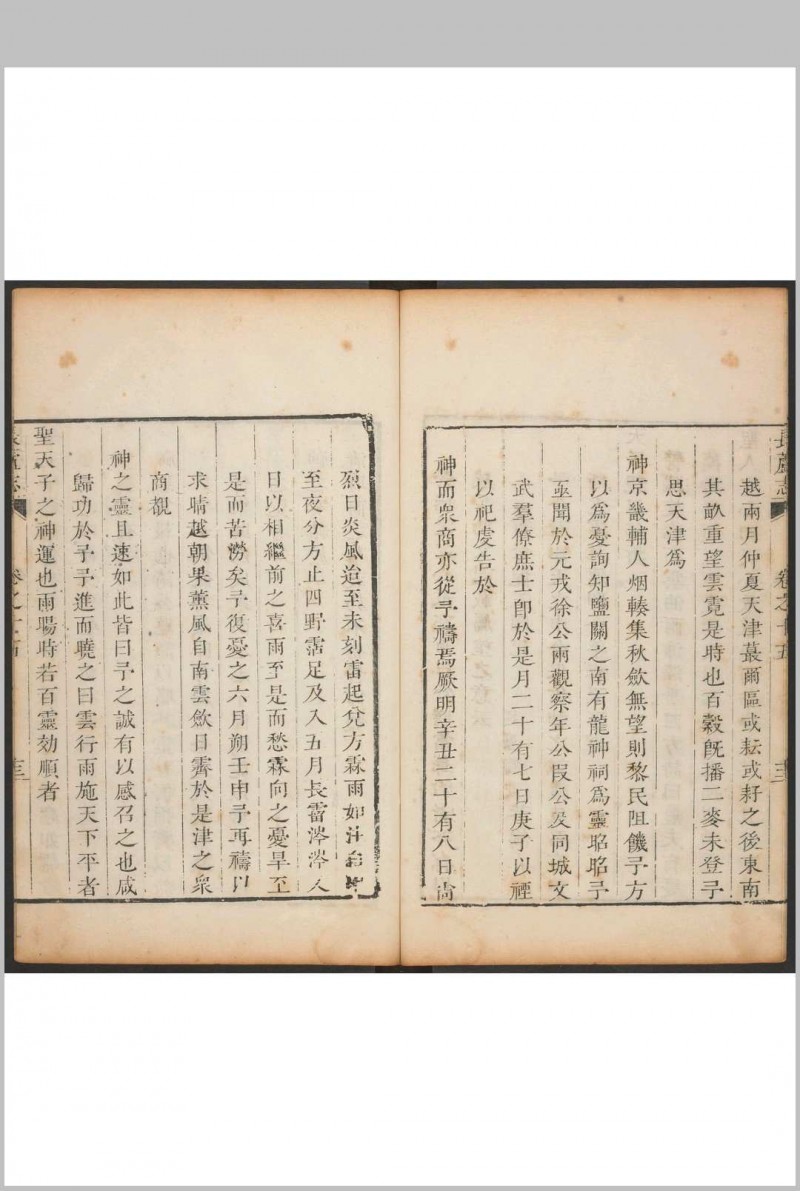 長蘆志
卷之十五
十三
越兩月仲夏天津蕞爾區或耘或耔之後東南
其畝重望雲霓是時也百穀旣播二麥未登予
思天津爲
神京畿輔人烟輳集秋歛無望則黎民阻饑予方
以爲憂詢知鹽關之南有龍神祠爲靈昭昭予
亟聞於元戎徐公兩觀察年公叚公及同城文
武羣僚庶士卽於是月二十有七日庚子以禋
以祀虔告於
神而衆商亦從予禱焉厥明辛丑二十有八日尙
烈日炎風迨至未刻雷起兌方霖雨如注
至夜分方止四野霑足及入五月長霤涔涔人
日以相繼前之喜雨至是而愁霖向之憂旱至
是而苦澇矣予復憂之六月朔壬申予再禱以
求晴越朝果薰風自南雲歛日霽於是津之衆
商覩
神之靈且速如此皆曰予之誠有以感召之也咸
歸功於予予進而曉之曰雲行雨施天下平者
聖天子之神運也雨暘時若百靈効順者
長蘆志
卷之十五
十三